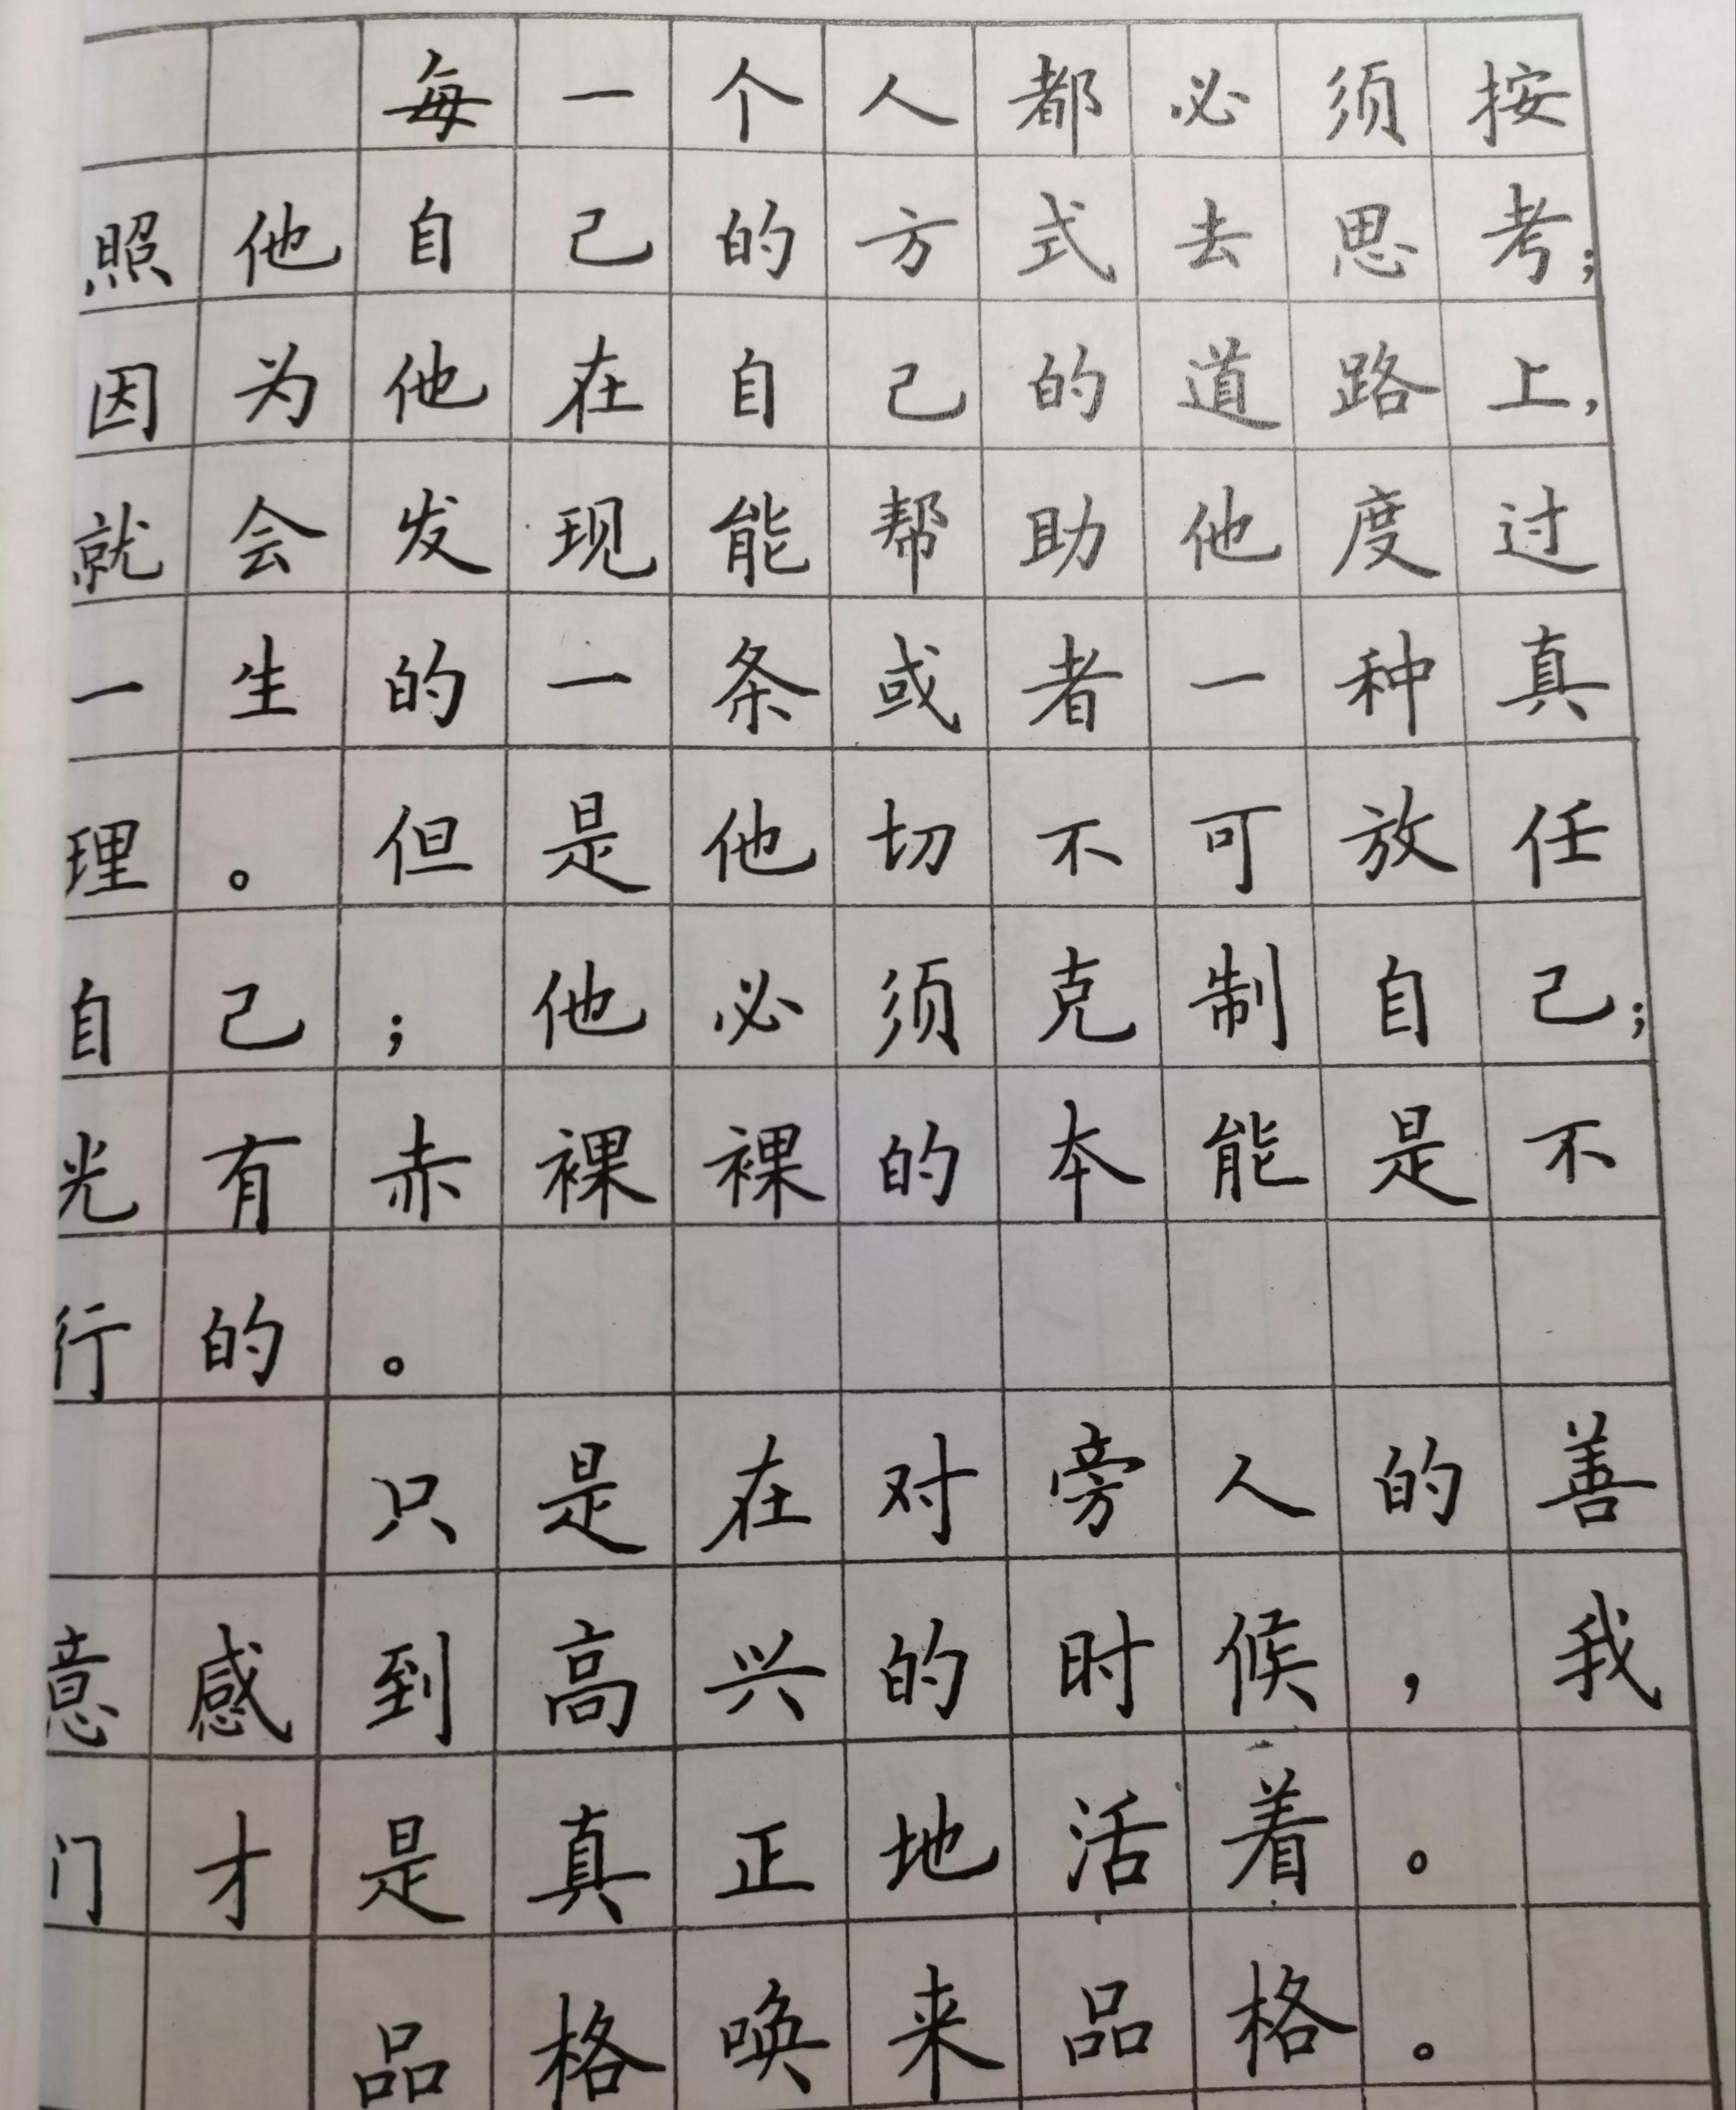 每一个人都必须按
照他自己的方式去思考；
因为他在自己的道路上，
就会发现能帮助他度过
一生的一条或者一种真
理。但是他切不可放任
自己；他必须克制自己；
光有赤裸裸的本能是不
行的。
只是在对旁人的善
意感到高兴的时候，我
们才是真正地活着。
品格唤来品格。